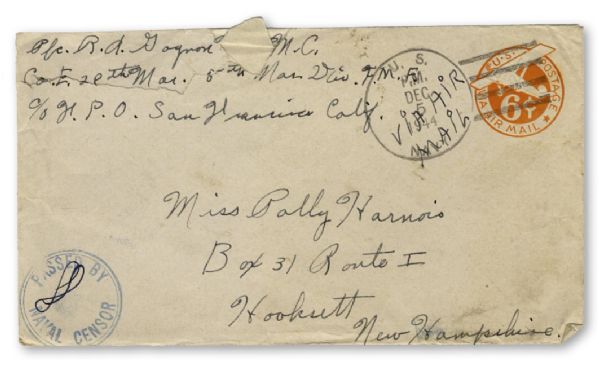 Pfc. R. A. Gagnon M.C.
Co. E. 28th Mar. 5th Mar. Div. F.M.F.
c/o F. P. O. San Francisco Calif.
U. S.
P.M.
DEC
5
1944
NAVY
VIA AIR
MAIL
U·S· POSTAGE
6¢
VIA AIR MAIL
Miss Polly Harnois
Box 31 Route I
Hooksett
New Hampshire.
PASSED BY
NAVAL CENSOR